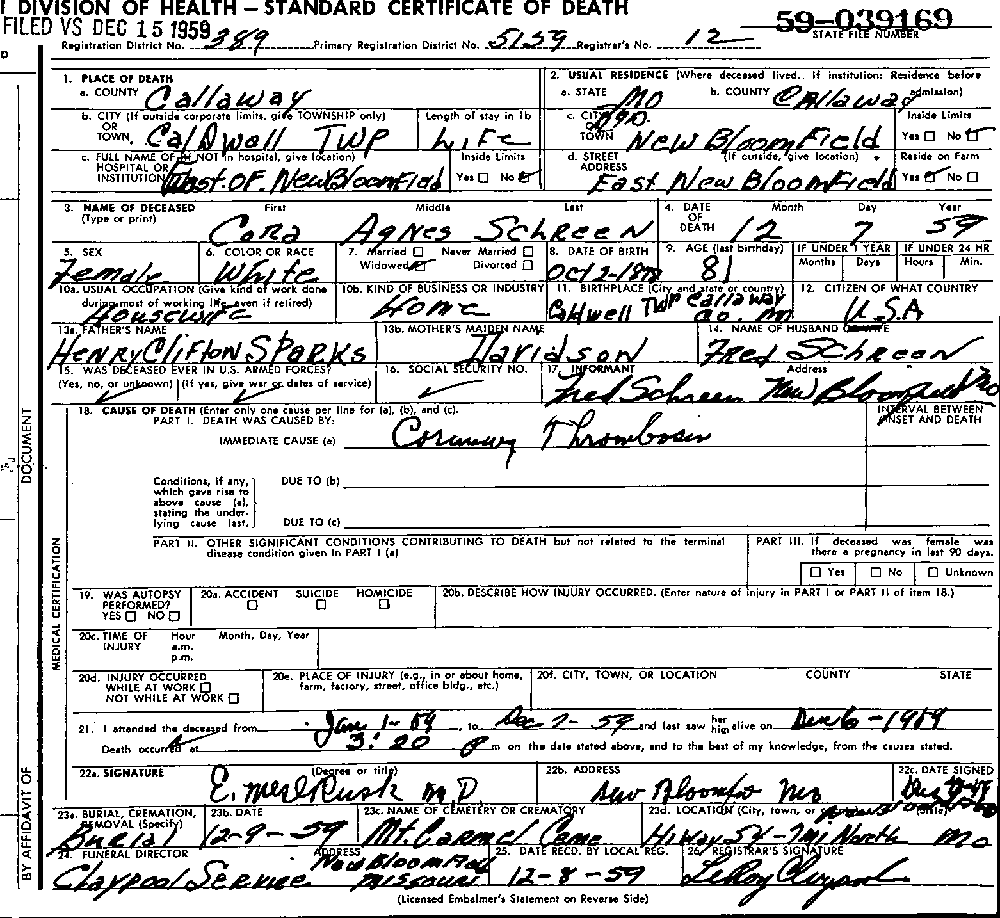 DIVISION OF HEALTH — STANDARD CERTIFICATE OF DEATH
FILED VS DEC 15 1959
59-039169
STATE FILE NUMBER
Registration District No. 389 Primary Registration District No. 5159 Registrar's No. 12
1. PLACE OF DEATH
a. COUNTY Callaway
2. USUAL RESIDENCE (Where deceased lived. If institution: Residence before admission)
a. STATE MO b. COUNTY Callaway
b. CITY (If outside corporate limits, give TOWNSHIP only) OR TOWN, Caldwell TWP
Length of stay in 1b Life
c. CITY OR TOWN New Bloomfield
Inside Limits Yes ☐ No ☑
c. FULL NAME OF (If NOT in hospital, give location) HOSPITAL OR INSTITUTION East OF New Bloomfield
Inside Limits Yes ☐ No ☑
d. STREET ADDRESS (If outside, give location) East New Bloomfield
Reside on Farm Yes ☑ No ☐
3. NAME OF DECEASED (Type or print) First Middle Last
Cora Agnes Schreen
4. DATE OF DEATH Month Day Year
12 7 59
5. SEX Female
6. COLOR OR RACE White
7. Married ☐ Never Married ☐ Widowed ☑ Divorced ☐
8. DATE OF BIRTH Oct 2-1878
9. AGE (last birthday) 81
IF UNDER 1 YEAR Months Days
IF UNDER 24 HR Hours Min.
10a. USUAL OCCUPATION (Give kind of work done during most of working life, even if retired) Housewife
10b. KIND OF BUSINESS OR INDUSTRY Home
11. BIRTHPLACE (City and state or country) Caldwell TWP Callaway Co. Mo
12. CITIZEN OF WHAT COUNTRY U.S.A
13a. FATHER'S NAME Henry Clifton Sparks
13b. MOTHER'S MAIDEN NAME Davidson
14. NAME OF HUSBAND Fred Schreen
15. WAS DECEASED EVER IN U.S. ARMED FORCES? (Yes, no, or unknown) (If yes, give war or dates of service)
16. SOCIAL SECURITY NO.
17. INFORMANT Address
Fred Schreen New Bloomfield Mo
18. CAUSE OF DEATH (Enter only one cause per line for (a), (b), and (c).
PART I. DEATH WAS CAUSED BY:
INTERVAL BETWEEN ONSET AND DEATH
IMMEDIATE CAUSE (a) Coronary Thrombosis
Conditions, if any, which gave rise to above cause (a), stating the underlying cause last.
DUE TO (b)
DUE TO (c)
PART II. OTHER SIGNIFICANT CONDITIONS CONTRIBUTING TO DEATH but not related to the terminal disease condition given in PART I (a)
PART III. If deceased was female was there a pregnancy in last 90 days.
☐ Yes ☐ No ☐ Unknown
19. WAS AUTOPSY PERFORMED? YES ☐ NO ☐
20a. ACCIDENT ☐ SUICIDE ☐ HOMICIDE ☐
20b. DESCRIBE HOW INJURY OCCURRED. (Enter nature of injury in PART I or PART II of item 18.)
20c. TIME OF INJURY Hour a.m. p.m. Month, Day, Year
20d. INJURY OCCURRED WHILE AT WORK ☐ NOT WHILE AT WORK ☐
20e. PLACE OF INJURY (e.g., in or about home, farm, factory, street, office bldg., etc.)
20f. CITY, TOWN, OR LOCATION COUNTY STATE
21. I attended the deceased from Jan 1-59, to Dec 7-59 and last saw her him alive on Dec 6-1959
Death occurred at 3:20 P m on the date stated above, and to the best of my knowledge, from the causes stated.
22a. SIGNATURE (Degree or title) M D
22b. ADDRESS New Bloomfield Mo
22c. DATE SIGNED
23a. BURIAL, CREMATION, REMOVAL (Specify) Burial
23b. DATE 12-9-59
23c. NAME OF CEMETERY OR CREMATORY Mt. Carmel Ceme
23d. LOCATION (City, town, or (State) HiWay 54-7mi North Mo
24. FUNERAL DIRECTOR ADDRESS
Claypool Service New Bloomfield Missouri
25. DATE RECD. BY LOCAL REG. 12-8-59
26. REGISTRAR'S SIGNATURE LeRoy Claypool
(Licensed Embalmer's Statement on Reverse Side)
DOCUMENT
MEDICAL CERTIFICATION
BY AFFIDAVIT OF